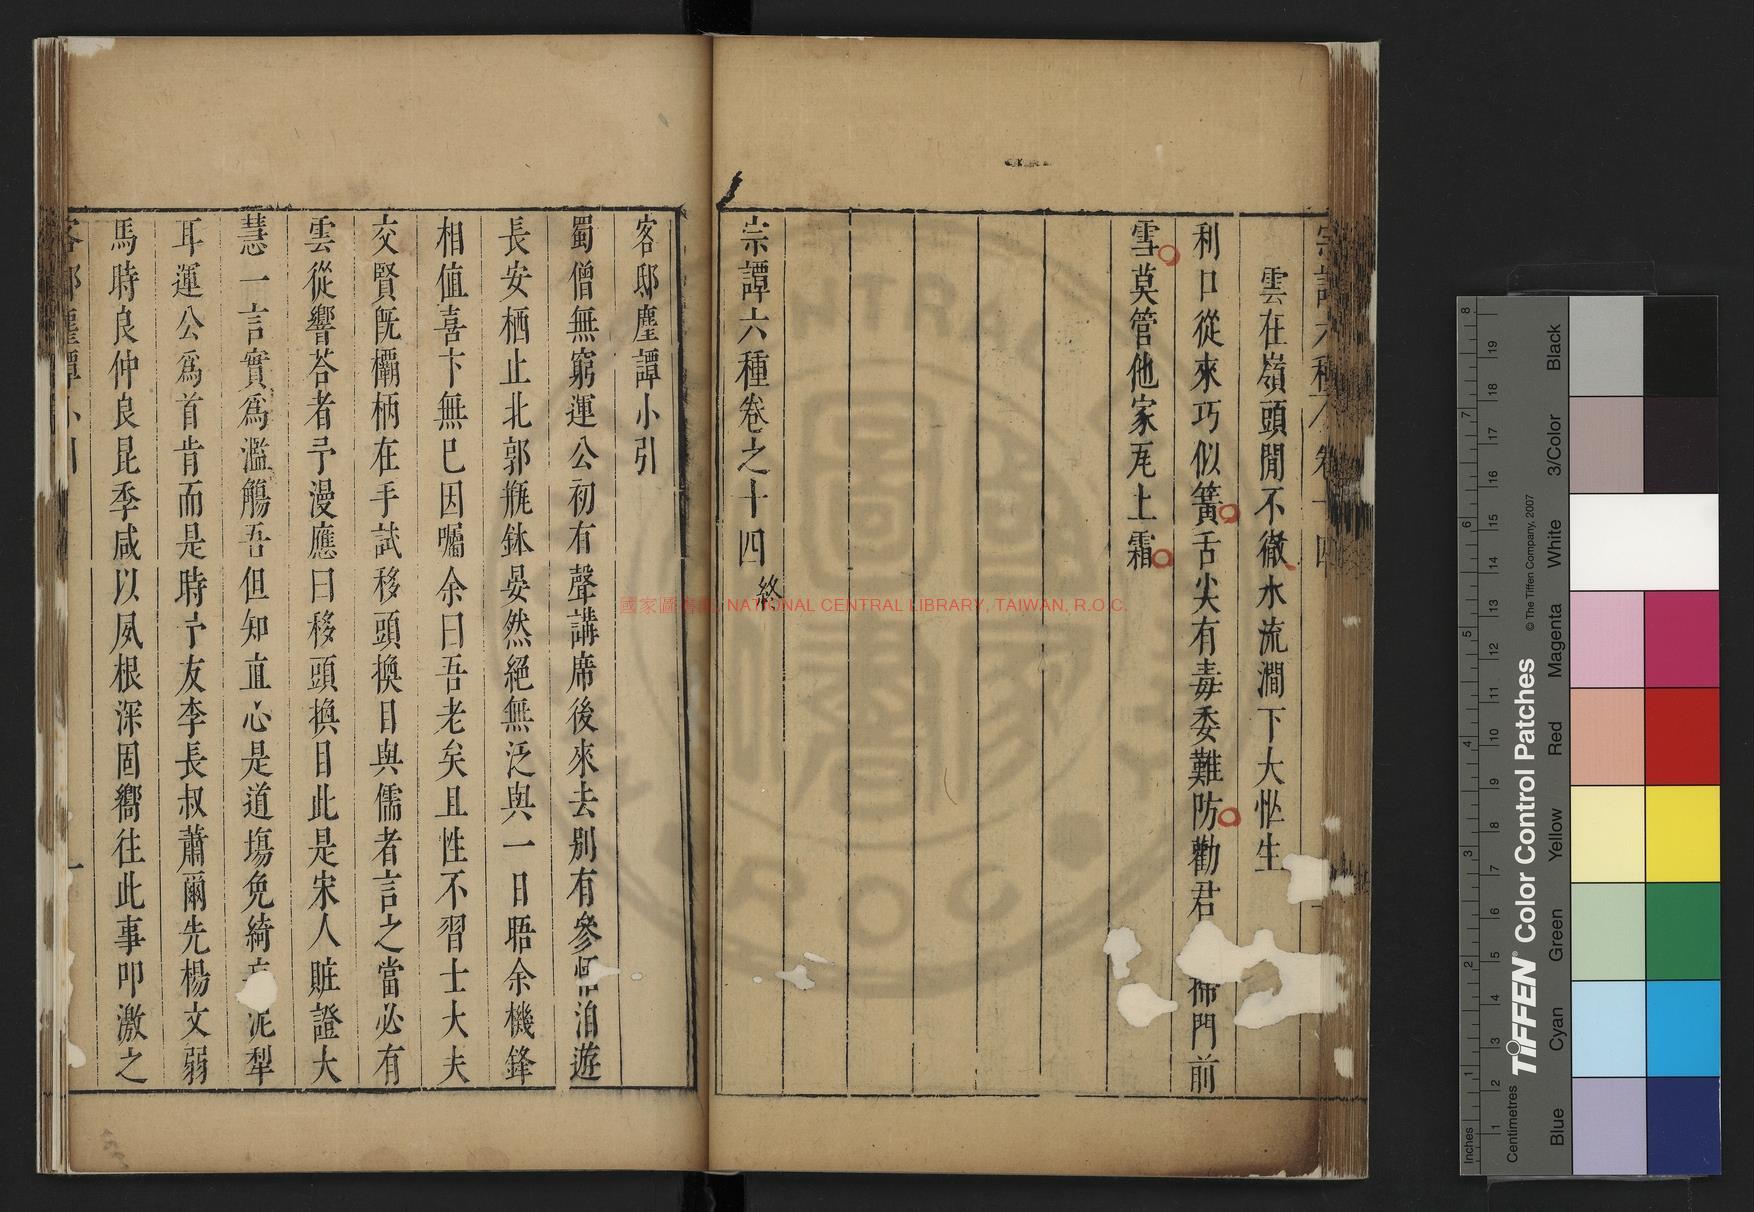 雲在嶺頭閒不徹水流澗下大忙生
利口從來巧似簧舌尖有毒委難防勸君
門前
雪莫管他家瓦上霜
宗譚六種卷之十四終
客邸塵譚小引
蜀僧無窮運公初有聲講席後來去別有參
洎遊
長安栖止北郭瓶鉢晏然絕無泛與一日晤余機鋒
相值喜卞無已因囑余曰吾老矣且性不習士大夫
交賢既欛柄在手試移頭換目與儒者言之當必有
雲從響荅者予漫應曰移頭換目此是宋人賍證大
慧一言實爲濫觴吾但知直心是道塲免綺
泥犁
耳運公爲首肯而是時予友李長叔蕭爾先楊文弱
馬時良仲良昆季咸以夙根深固嚮往此事叩激之
國家圖書館, NATIONAL CENTRAL LIBRARY, TAIWAN, R.O.C.
TIFFEN Color Control Patches
© The Tiffen Company, 2007
Inches
Centimetres
Blue
Cyan
Green
Yellow
Red
Magenta
White
3/Color
Black